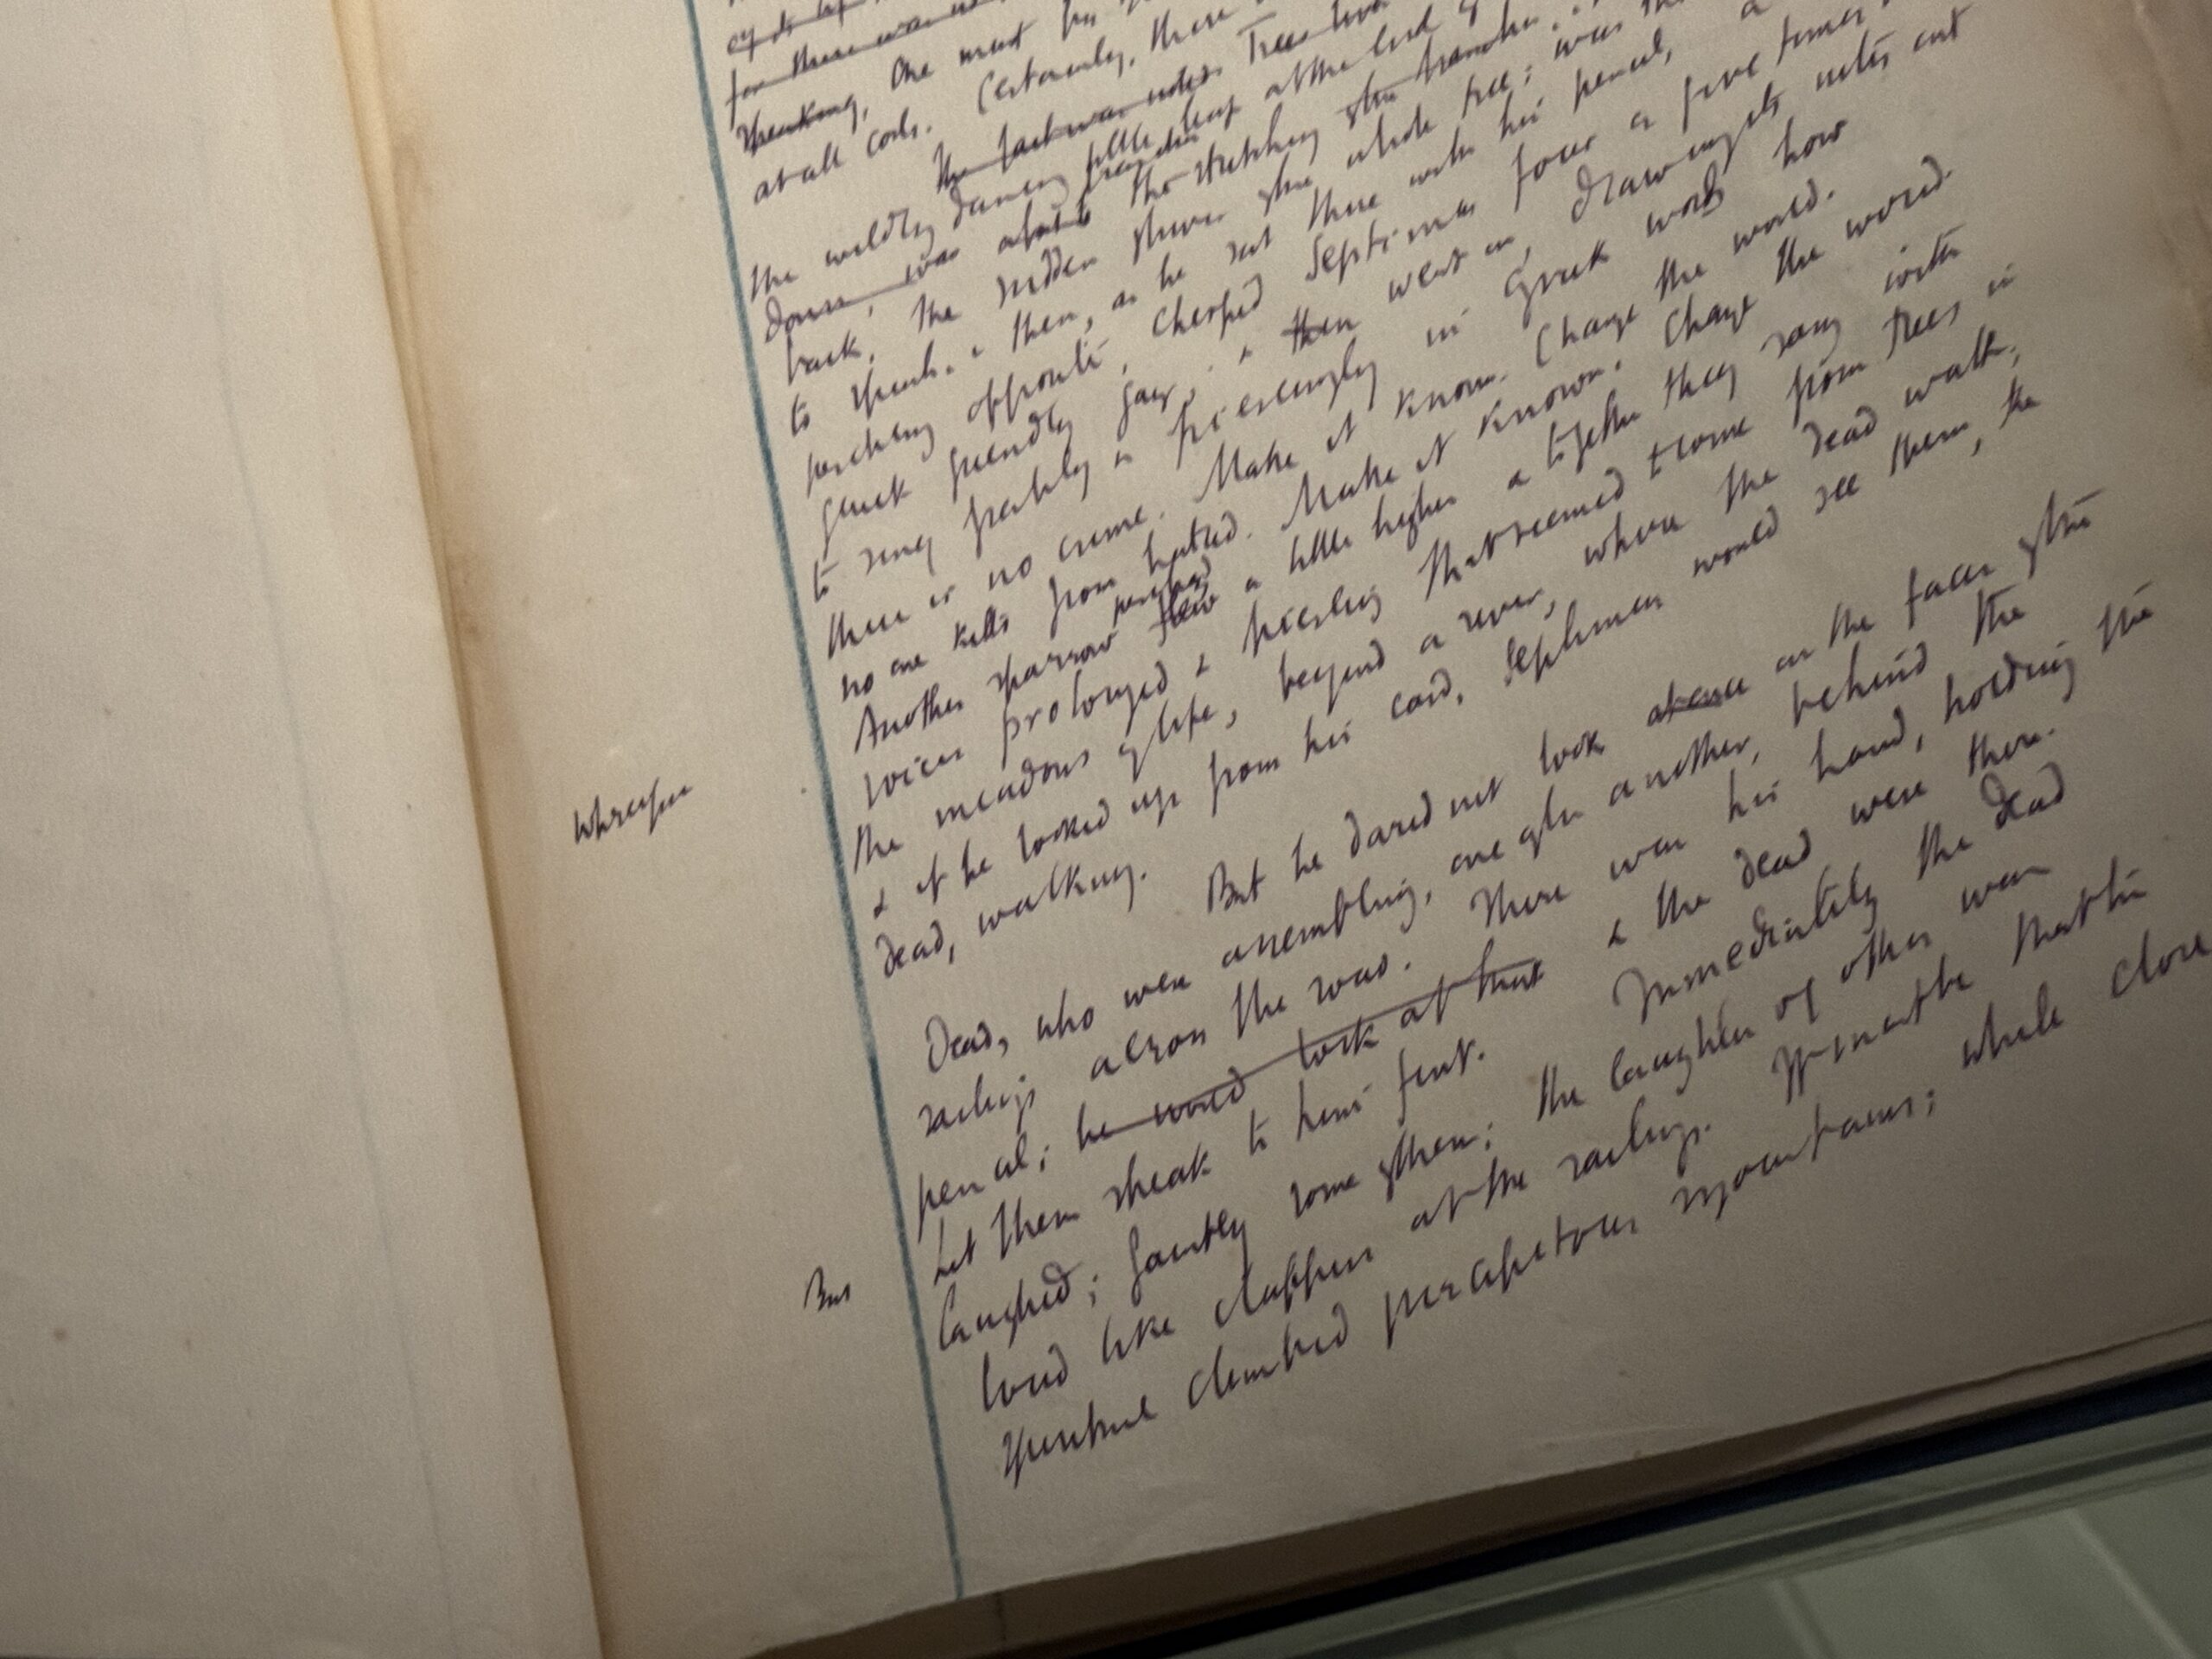 for there was
speaking, One must
at all costs. Certainly, there
the fact was
Trees
the wildly dancing little leaf at the end of
down, was about the stretching of the branches
back, the sudden shiver of the whole tree; was
to speak. & then, as he sat there with his pencil, a
perching opposite, cherped Septimus four or five times
quick friendly gay, & then went on, drawing its notes out
to sing freshly & piercingly in Greek words how
there is no crime. Make it known. Change the world.
no one kills from hatred. Make it known. Change the world.
Another sparrow perched flew a little higher & together they sang with
voices prolonged & piercing that seemed to come from trees in
Whereupon
the meadows of life, beyond a river, where the dead walk;
& if he looked up from his card, Septimus would see them, the
dead, walking. But he dared not look at once on the faces of the
Dead, who were assembling, one after another, behind the
railings across the way. There was his hand, holding the
pencil; he would look at that & the dead were there.
But
Let them speak to him first. Immediately the dead
laughed; faintly some of them; the laughter of other was
loud like clappers at the railings. It must be that the
Spirit climbed precipitous mountains; while close